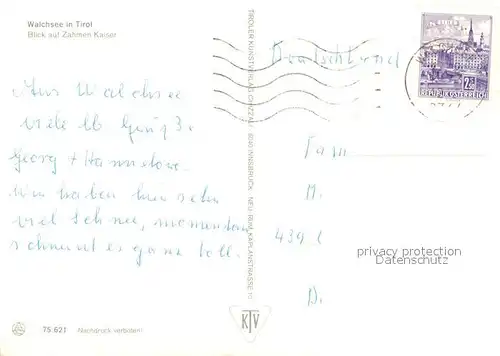 Walchsee in Tirol
Blick auf Zahmen Kaiser
Deutschland
Aus Walchsee
viele lb Grüße
Georg + Hannelore.
Wir haben hier sehr
viel Schnee, momentan
schneit es ganz toll.
TIROLER KUNSTVERLAG CHIZZALI 6040 INNSBRUCK, NEU-RUM, KAPLANSTRASSE
2.50
REPUBLIK ÖSTERREICH
Fam
M.
439
D.
privacy protection
Datenschutz
KTV
75.621 Nachdruck verboten!